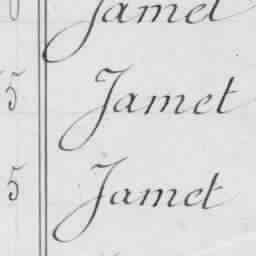 Jamet
5 Jamet
5 Jamet